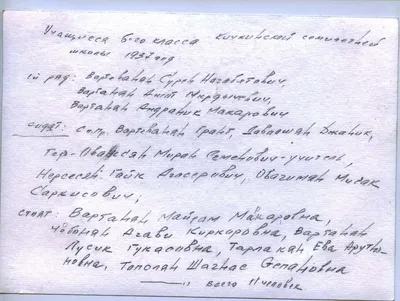 Учащиеся 6-го класса кичкинской семилетней
школы 1937 год
1й ряд: Вартеванян Сурен Нагапетович,
Вартанян Амот Мкрдычевич,
Вартанян Андраник Макарович
сидят: Вартеванян Грант, Давлашян Джаник,
Тер-Ованесян Миран Семенович-учитель,
Нерсесян Гайк Агасерович, Овагимян Мисак
Саркисович,
стоят: Вартанян Майрам Макаровна,
Чобанян Агави Киркоровна, Вартанян
Лусик Гукасовна, Тарлакян Ева Арутю-
новна, Тополян Шагнас Степановна
всего 11 человек